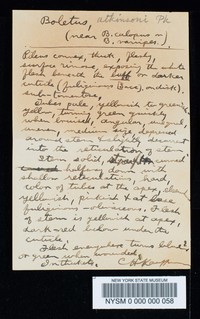 Boletus, atkinsoni Pk
(near B. calopus or
B. rairipes.)
Pileus convex, thick, fleshy,
surface rimose, exposing the white
flesh beneath the buff or darker
cuticle (fuliginous
subtomentose.
Tubes pale, yellowish to green
yellow, bruised
when bruised, angular,
uneven, medium size, depressed
around stem & slightly descent
into the reticulation of stem
Stem solid, curved
halfway down
shallow reticulations,
color of tubes at the apex,
yellowish, pinkish & at base
fuliginous Flesh
of stem is yellowish at apex,
dark red below under the
cuticle.
Flesh everywhere turns blue
or green when bruised
In thickets.
NEW YORK STATE MUSEUM
NYSM 0 000 000 058